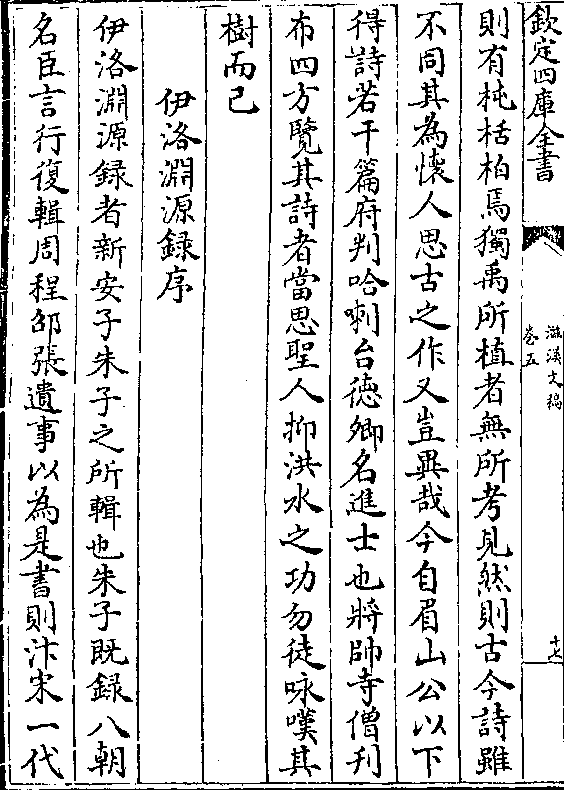 欽定四庫全書
滋溪文稿
卷五
十七
則有杶栝柏焉獨禹所植者無所考見然則古今詩雖
不同其為懷人思古之作又豈異哉今自眉山公以下
得詩若干篇府判哈喇台德卿名進士也將帥寺僧刋
布四方覽其詩者當思聖人抑洪水之功勿徒咏嘆其
樹而已
伊洛淵源録序
伊洛淵源録者新安子朱子之所輯也朱子既録八朝
名臣言行復輯周程邵張遺事以為是書則汴宋一代